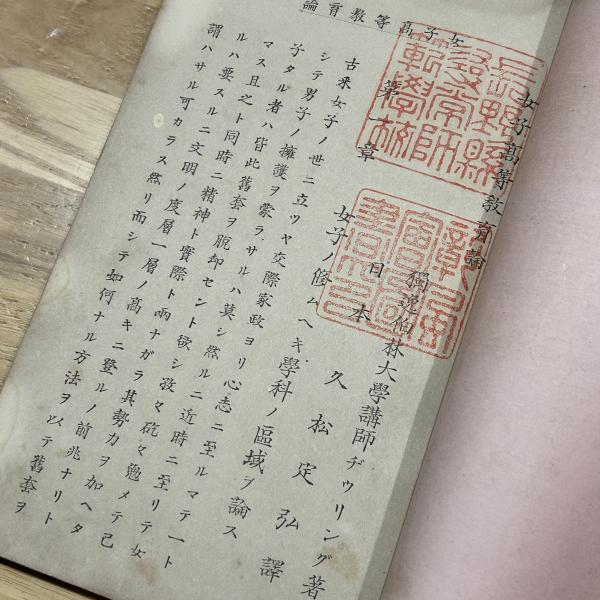 女子高等教育論
女子高等教育論
獨逸伯林大學講師 ヂウリング著
日本 久松定弘譯
第一章 女子ノ修ムヘキ學科ノ區域ヲ論ス
古来女子ノ世ニ立ツヤ交際家政ヨリ心志ニ至ルマテ一ト
シテ男子ノ擁護ヲ蒙ラサルハ莫シ然ルニ近時ニ至リテ女
子タル者ハ皆此舊套ヲ脱却セント欲シ孜々矻々勉メテ已
マス且之ト同時ニ精神ト實際ト兩ナガラ其勢力ヲ加ヘタ
ルハ要スルニ文明ノ度層一層ノ髙キニ登ルノ前兆ナリト
謂ハサル可カラス然リ而シテ如何ナル方法ヲ以テ舊套ヲ
長野縣
尋常師
範學校